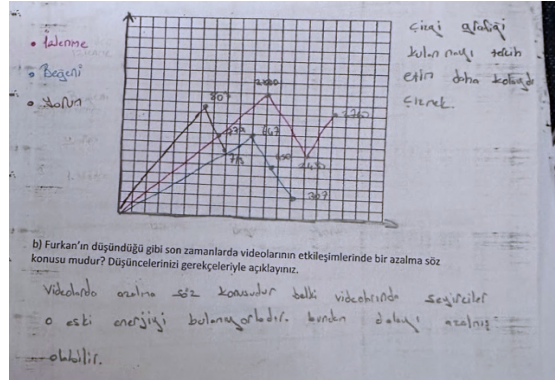 • İzlenme
• Beğeni
• Yorum
Çizgi grafiği
kullanmayı tercih
ettim daha kolaydı
çizmek.
b) Furkan'ın düşündüğü gibi son zamanlarda videolarının etkileşimlerinde bir azalma söz
konusu mudur? Düşüncelerinizi gerekçeleriyle açıklayınız.
Videolarda azalma söz konusudur belki videolarında seyirciler
o eski enerjiyi bulamıyorlardır. bundan dolayı azalmış
olabilir.